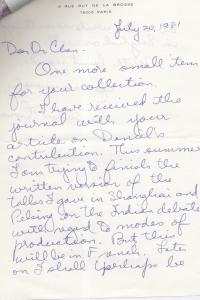 2 RUE GUY DE LA BROSSE
75005 PARIS
July 20, 1981
Dear Dr Chan -
One more small item
for your collection.
I have received the
journal with your
article on Daniel's
contribution. This summer
I am trying to finish the
written version of the
talks I gave in Shanghai and
Peking on the Indian debate
with regard to modes of
production. But this
will be in French. Later
on I shall perhaps be